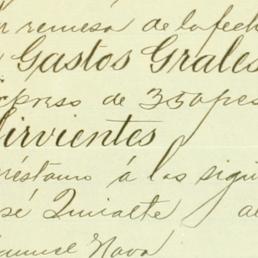 remesa de la fech
Gastos Grales
de 350 pes
Sirvientes
réstamo á los sigu
sé Quialte al
anuel Nava